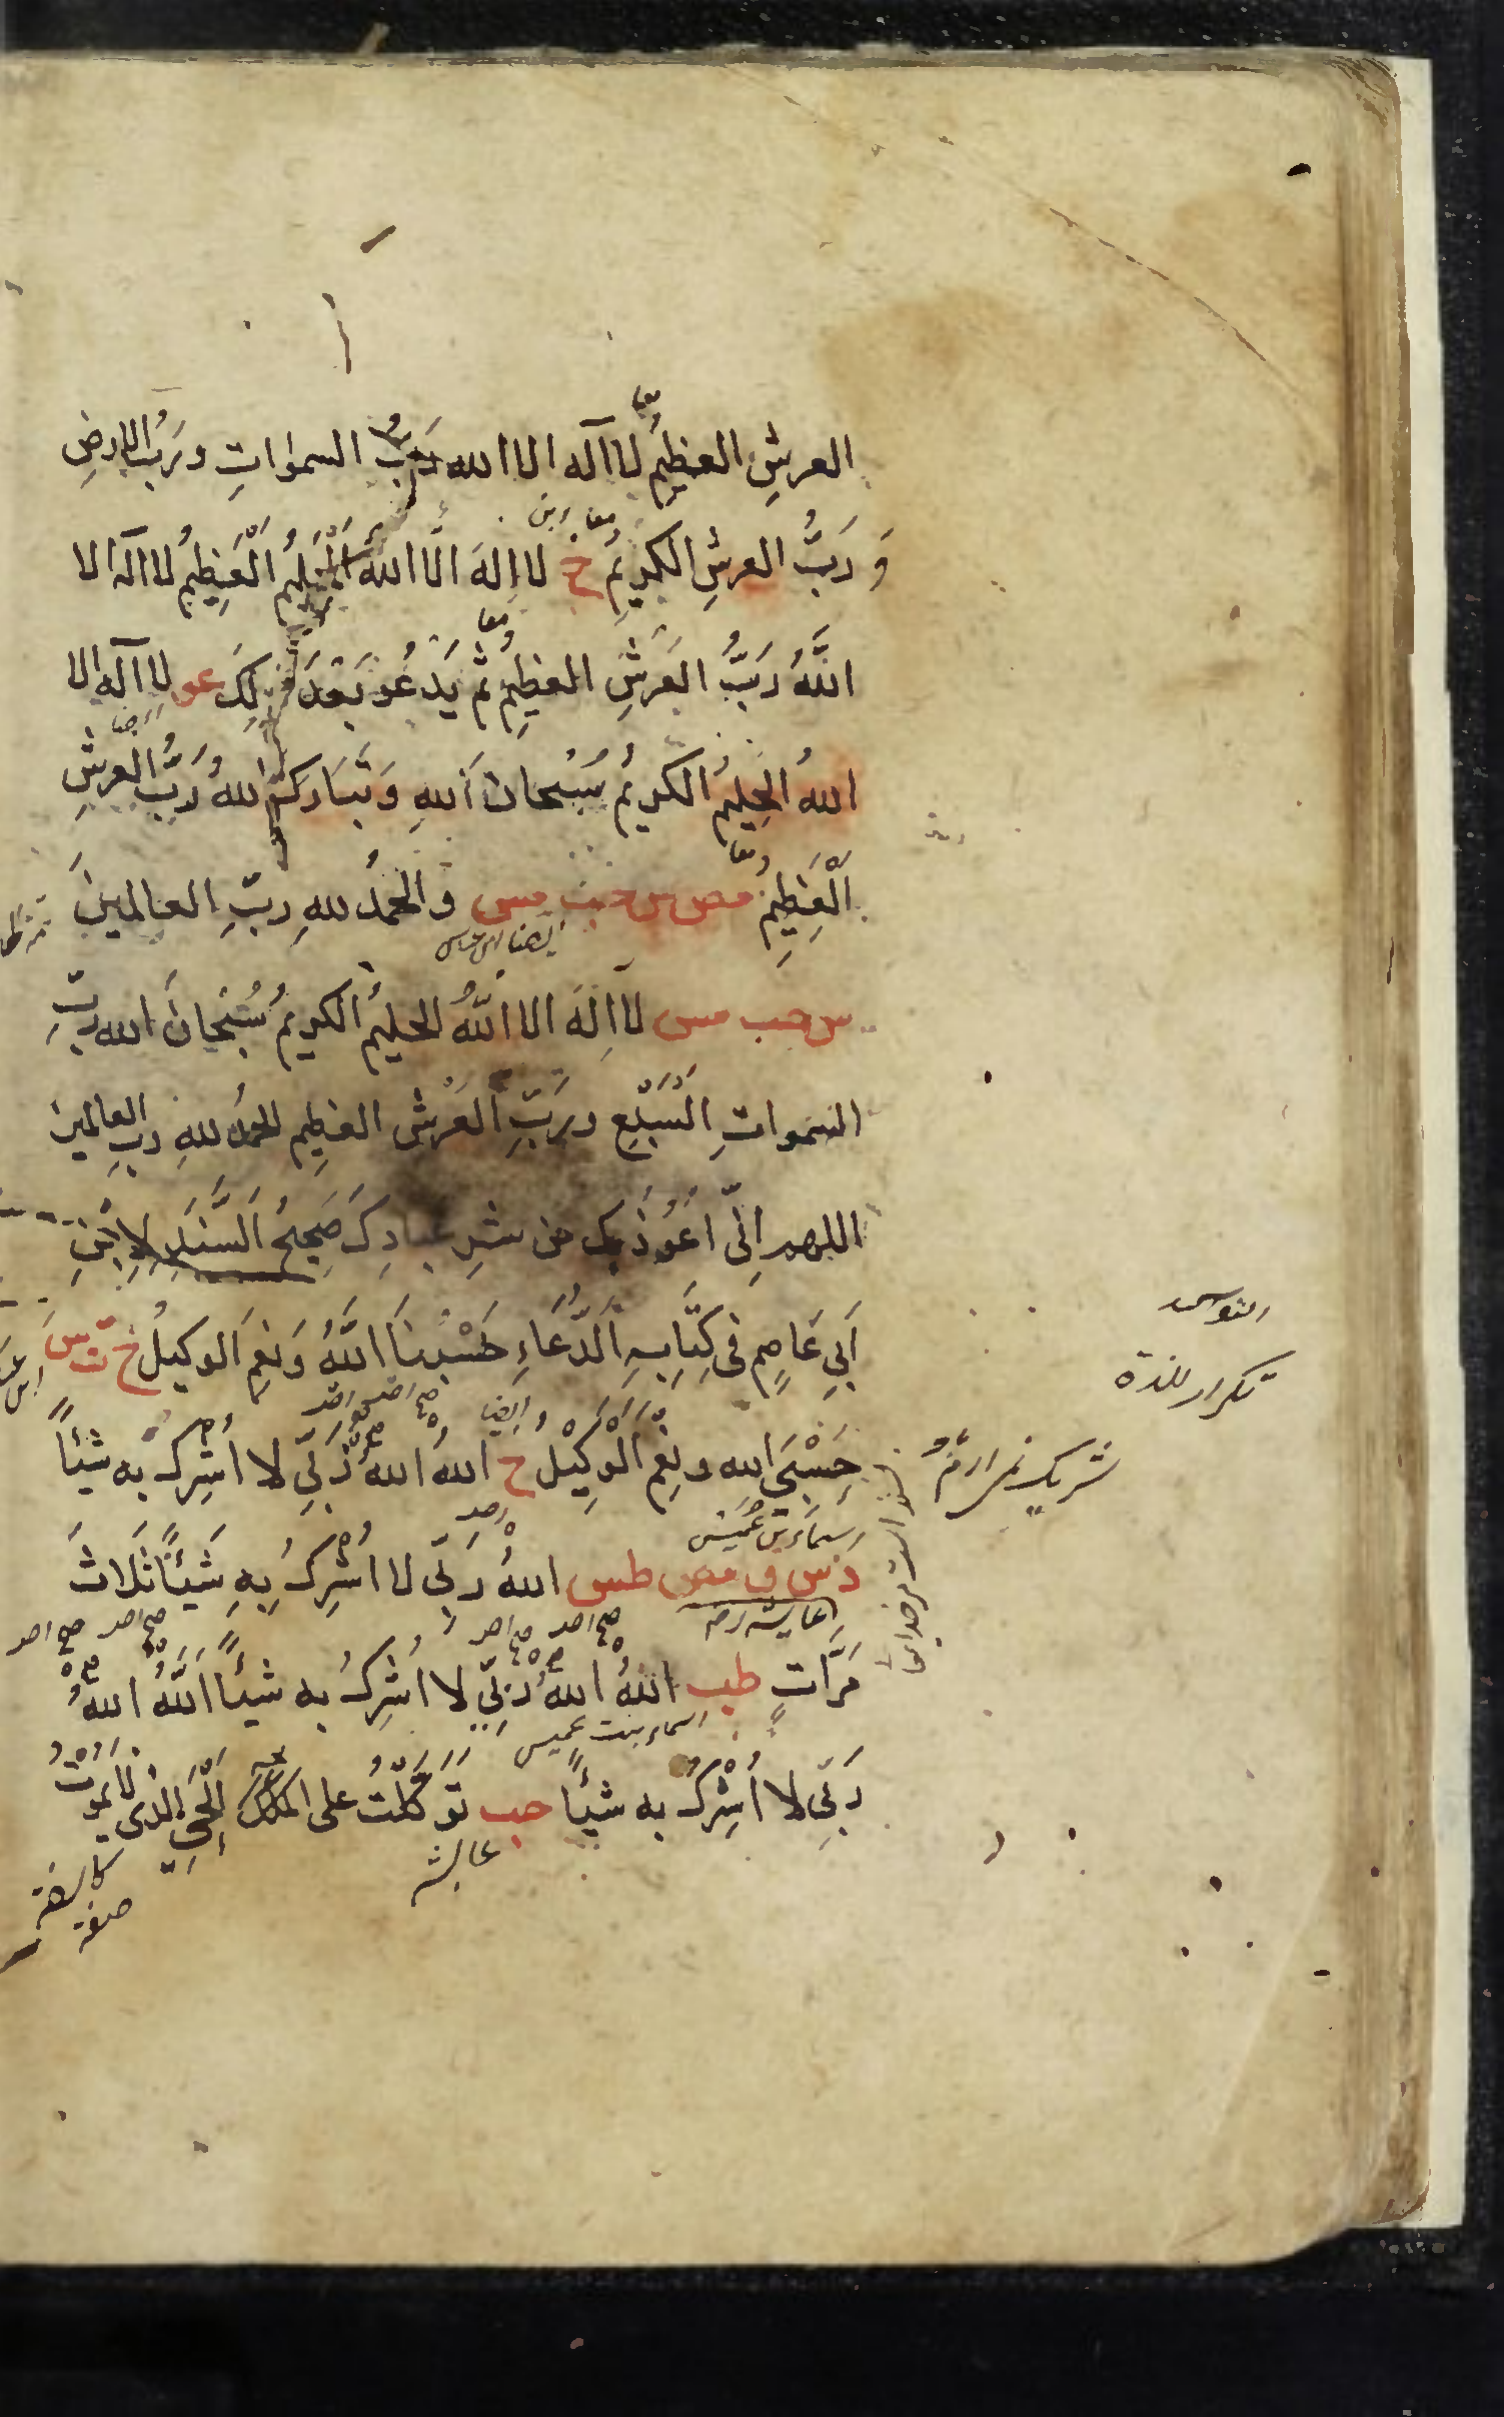 معا
العرشِ العظيمُ لا اله الا الله رَبُّ السموٰاتِ ورَبُّ الارضِ
معا
وَ رَبُّ العرشِ الكريمُ خ لا اِلهَ الَّا اللهُ الْحَلِيمُ الْعَظِيمُ لا اله الا
معا
اللَّهُ رَبُّ العَرْشِ العظيمُ ثم يَدْعُو بَعْدَ ذٰلِكَ عو لا اله الا
اللهُ الحَلِيمُ الكريمُ سُبْحانَ اللهِ وَتَبَارَكَ اللهُ رَبُّ العرشِ
معا
الْعَظِيمِ مص س حب مس والحمدُ للهِ ربِّ العالمينَ
ايضا ابن عباس
س حب مس لا اِلهَ الا اللَّهُ الحليمُ الكريمُ سُبْحَانَ الله ربِّ
السموات السَّبْعِ وربِّ العَرْشِ العظيمِ الحمدُ للهِ ربِ العالمين
اللهم اِنِّى اَعُوْذُ بِكَ من شرِ عبادِكَ صَحِيحُ السَّنَدِ لِابْنِ
اَبِي عَاصِمٍ فى كِتَابِهِ الدُّعَاءِ حَسْبُنَا اللَّهُ وَنِعْمَ الوكيلُ خ ت س
تكرار للذة
ايضا
حَسْبِيَ الله ونِعْمَ الْوَكِيْلُ خ اللهُ اللهُ رَبِّي لا اُشْرِكُ به شيئاً
اسماء بنت عُمَيْس
د س ق مص طس اللهُ رَبِّى لا اُشْرِكُ بِهِ شَيْئاً ثَلَاثَ
عايشه رضـ
صح احد صح احد صح احد صح احد
مَرَّاتٍ طب اللهُ اللهُ رَبِّى لا اُشْرِكُ به شيئاً اَللَّهُ اللهُ
اسماء بنت عميس
رَبِّى لا اُشْرِكُ به شيئاً حب تَوَكَّلْتُ على الْحَىِّ الذى لا يَمُوْتُ
عايشه